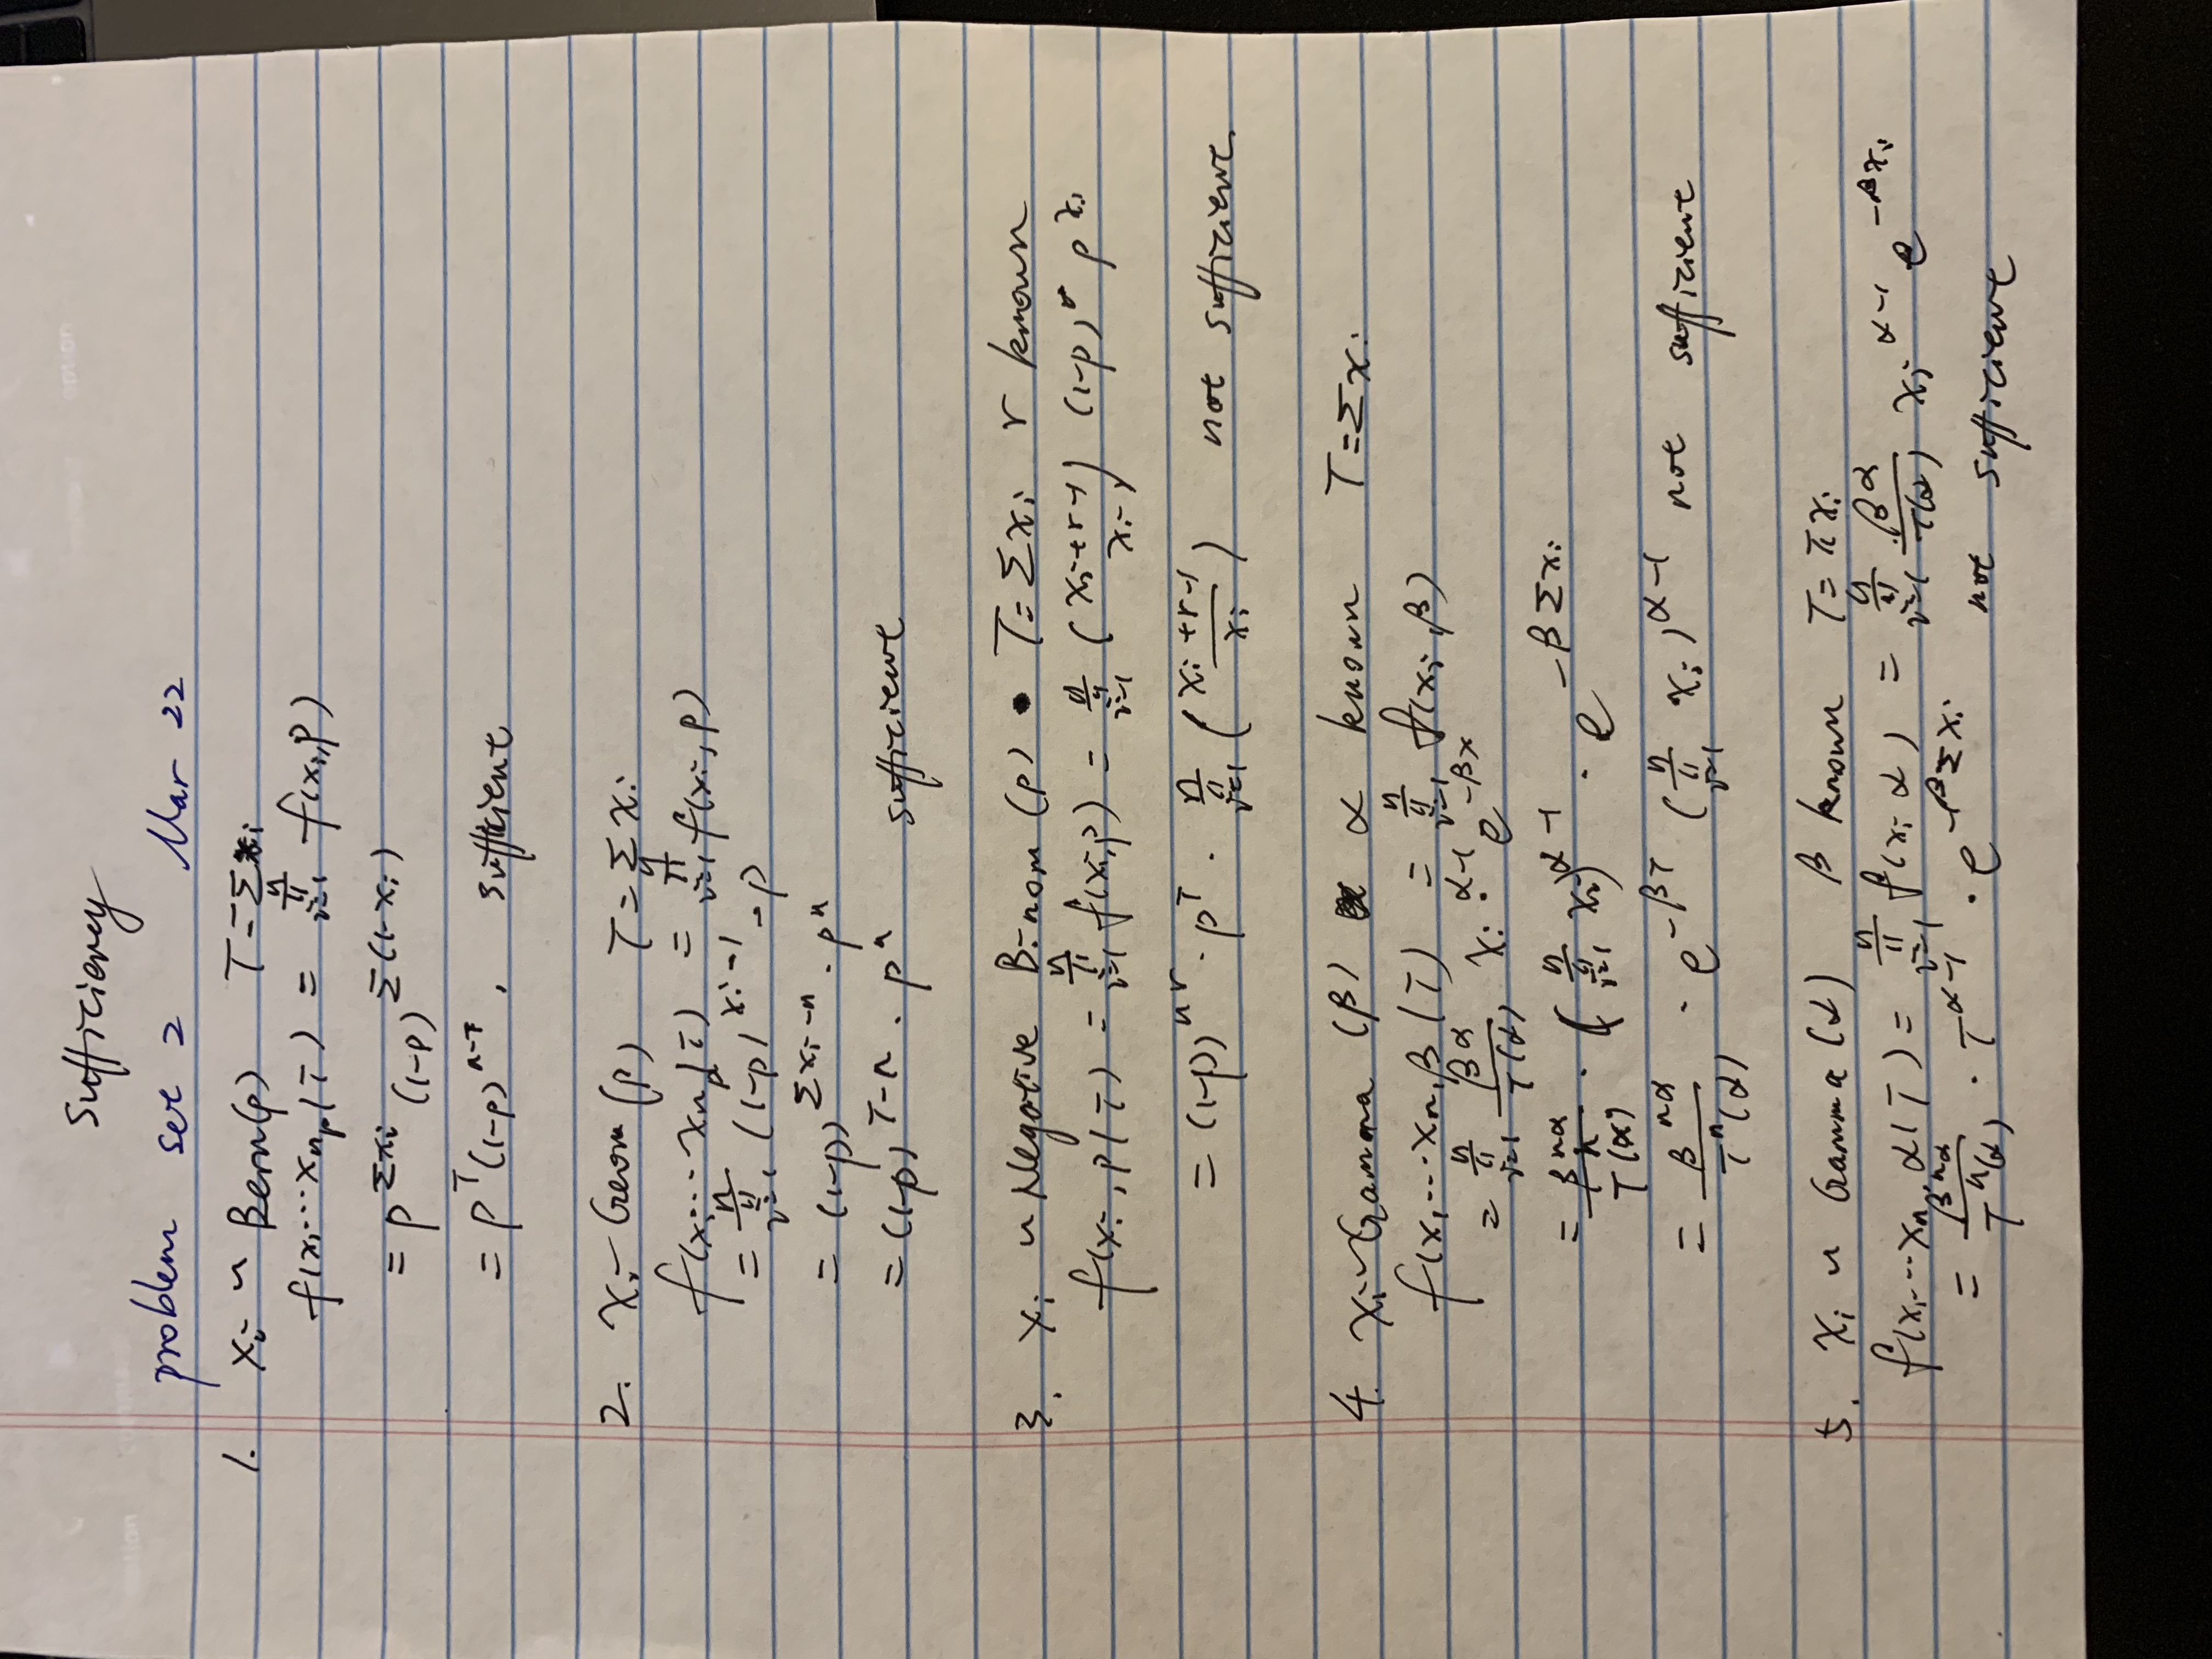 Sufficiency
problem set 2 Mar 22
1. Xi ~ Bern(p) T=Σxi
f(x1...xn,p|T) = ∏_{i=1}^{n} f(xi,p)
= p^{Σxi} (1-p)^{Σ(1-xi)}
= p^T (1-p)^{n-T}. sufficient
2. Xi ~ Geom(p) T=Σxi
f(x1...xn,p|T) = ∏_{i=1}^{n} f(xi,p)
= ∏_{i=1}^{n} (1-p)^{xi-1} · p
= (1-p)^{Σxi-n} · p^n
= (1-p)^{T-n} · p^n sufficient
3. Xi ~ Negative Binom(p) T=Σxi r known
f(xi,p|T) = ∏_{i=1}^{n} f(xi,p) = ∏_{i=1}^{n} (xi+r-1 / xi) (1-p)^r p^{xi}
= (1-p)^{nr} · p^T · ∏_{i=1}^{n} (xi+r-1 / xi) not sufficient.
4. Xi ~ Gamma(β) α known T=Σxi
f(x1...xn,β|T) = ∏_{i=1}^{n} f(xi,β)
= ∏_{i=1}^{n} β^α/Γ(α) xi^{α-1} · e^{-βx}
= β^{nα}/Γ^n(α) · (∏_{i=1}^{n} xi)^{α-1} · e^{-βΣxi}
= β^{nα}/Γ^n(α) · e^{-βT} (∏_{i=1}^{n} xi)^{α-1} not sufficient
5. Xi ~ Gamma(α) β known T=πxi
f(x1...xn,α|T) = ∏_{i=1}^{n} f(xi,α) = ∏_{i=1}^{n} β^α/Γ(α) xi^{α-1} e^{-βxi}
= β^{nα}/Γ^n(α) · T^{α-1} · e^{-βΣxi} not sufficient